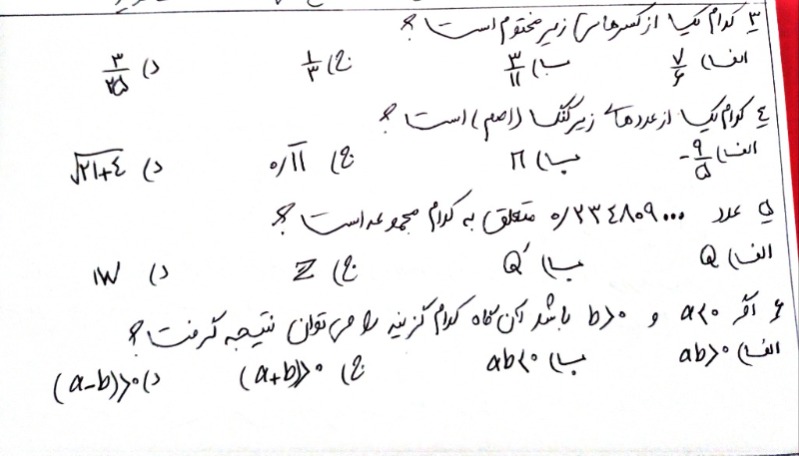 ۳ کدام یک از کسرهای زیر مختوم است؟
الف) ۷/۶ ب) ۳/۱۱ ج) ۱/۳ د) ۳/۲۵
٤ کدام یک از عددهای زیر گنگ (اصم) است؟
الف) -۹/۵ ب) π ج) ۰/۱۱ د) √۲۱+٤
۵ عدد ۰/۲۳٤۸۰۹... متعلق به کدام مجموعه است؟
الف) Q ب) Q′ ج) Z د) W
۶ اگر a<۰ و b>۰ باشد آن گاه کدام گزینه را می توان نتیجه گرفت؟
الف) ab>۰ ب) ab<۰ ج) (a+b)>۰ د) (a-b)>۰